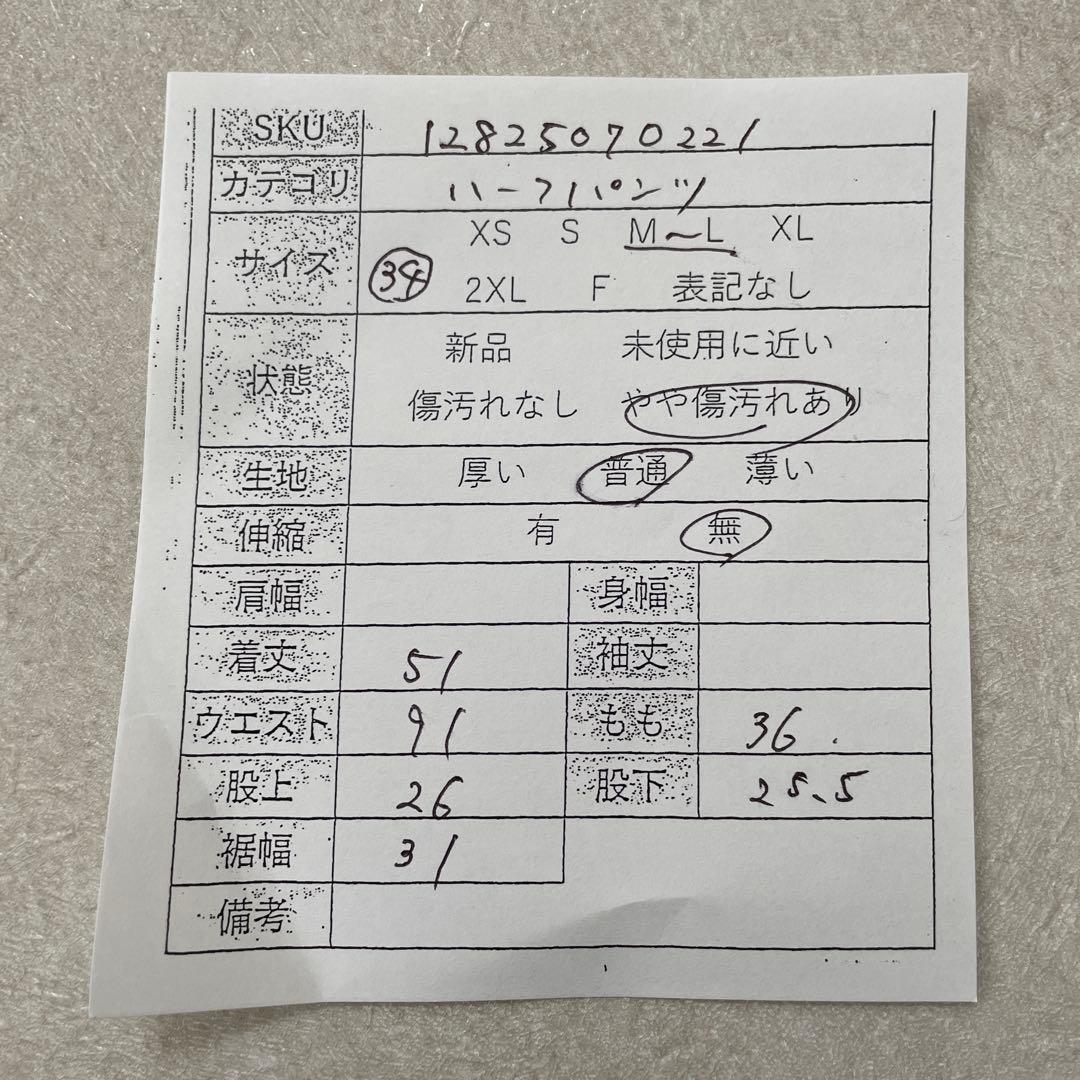 SKU 12825070221
カテゴリ ハーフパンツ
サイズ XS S M～L XL
34 2XL F 表記なし
状態 新品 未使用に近い
傷汚れなし やや傷汚れあり
生地 厚い 普通 薄い
伸縮 有 無
肩幅 身幅
着丈 51 袖丈
ウエスト 91 もも 36
股上 26 股下 25.5
裾幅 31
備考